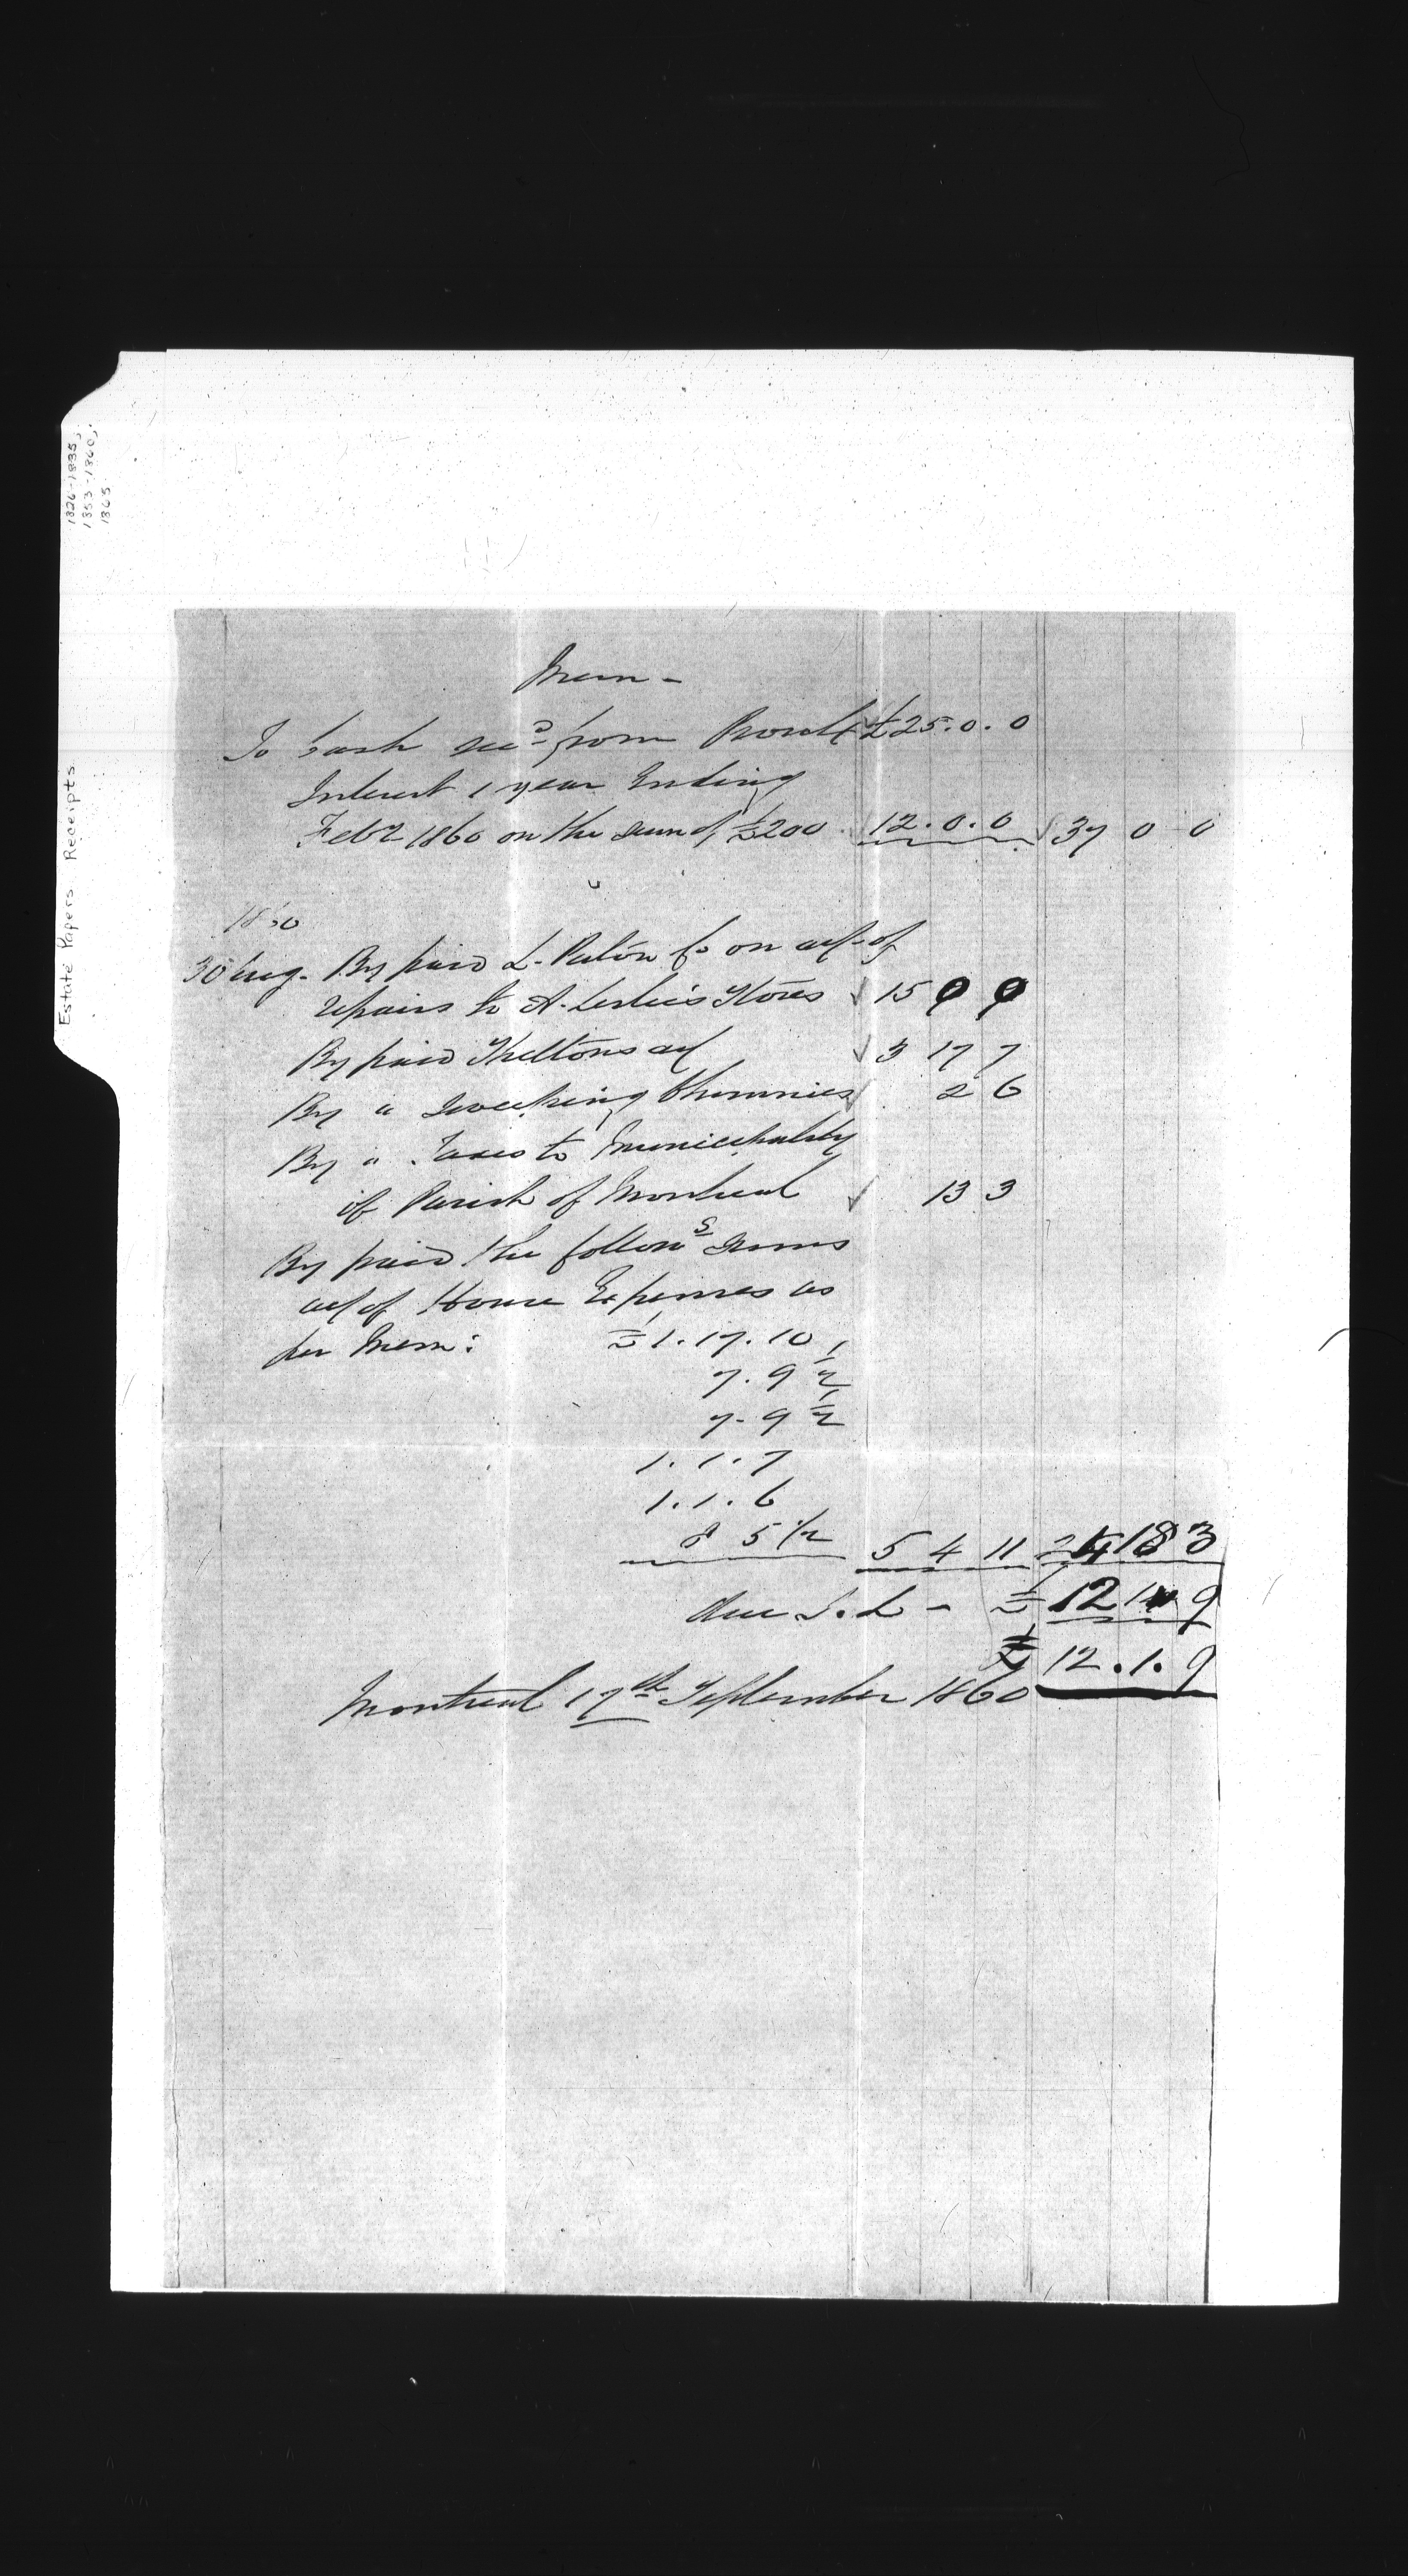 1826-1835,
1853-1860,
1865
Estate Papers. Receipts
Mem -
To Cash recd from Proulx £25.0.0
Interest 1 year Ending
Feby 1860 on the sum of £200 12.0.0 37 0 0
1860
30 Aug. By paid L. Paton Co on act of
repairs to A. Leslie's Stores 15 0 0
By paid Sheltons act 3 17 7
By " Sweeping Chimnies 2 6
By " Taxes to Municipality
of Parish of Montreal 13 3
By paid the follows sums
act of House Expenses as
per Mem: £1.17.10
7.9 1/2
7.9 1/2
1.1.7
1.1.6
8 5 1/2 5 4 11 24 18 3
due J.L - £ 12 1 9
£ 12.1.9
Montreal 17th September 1860